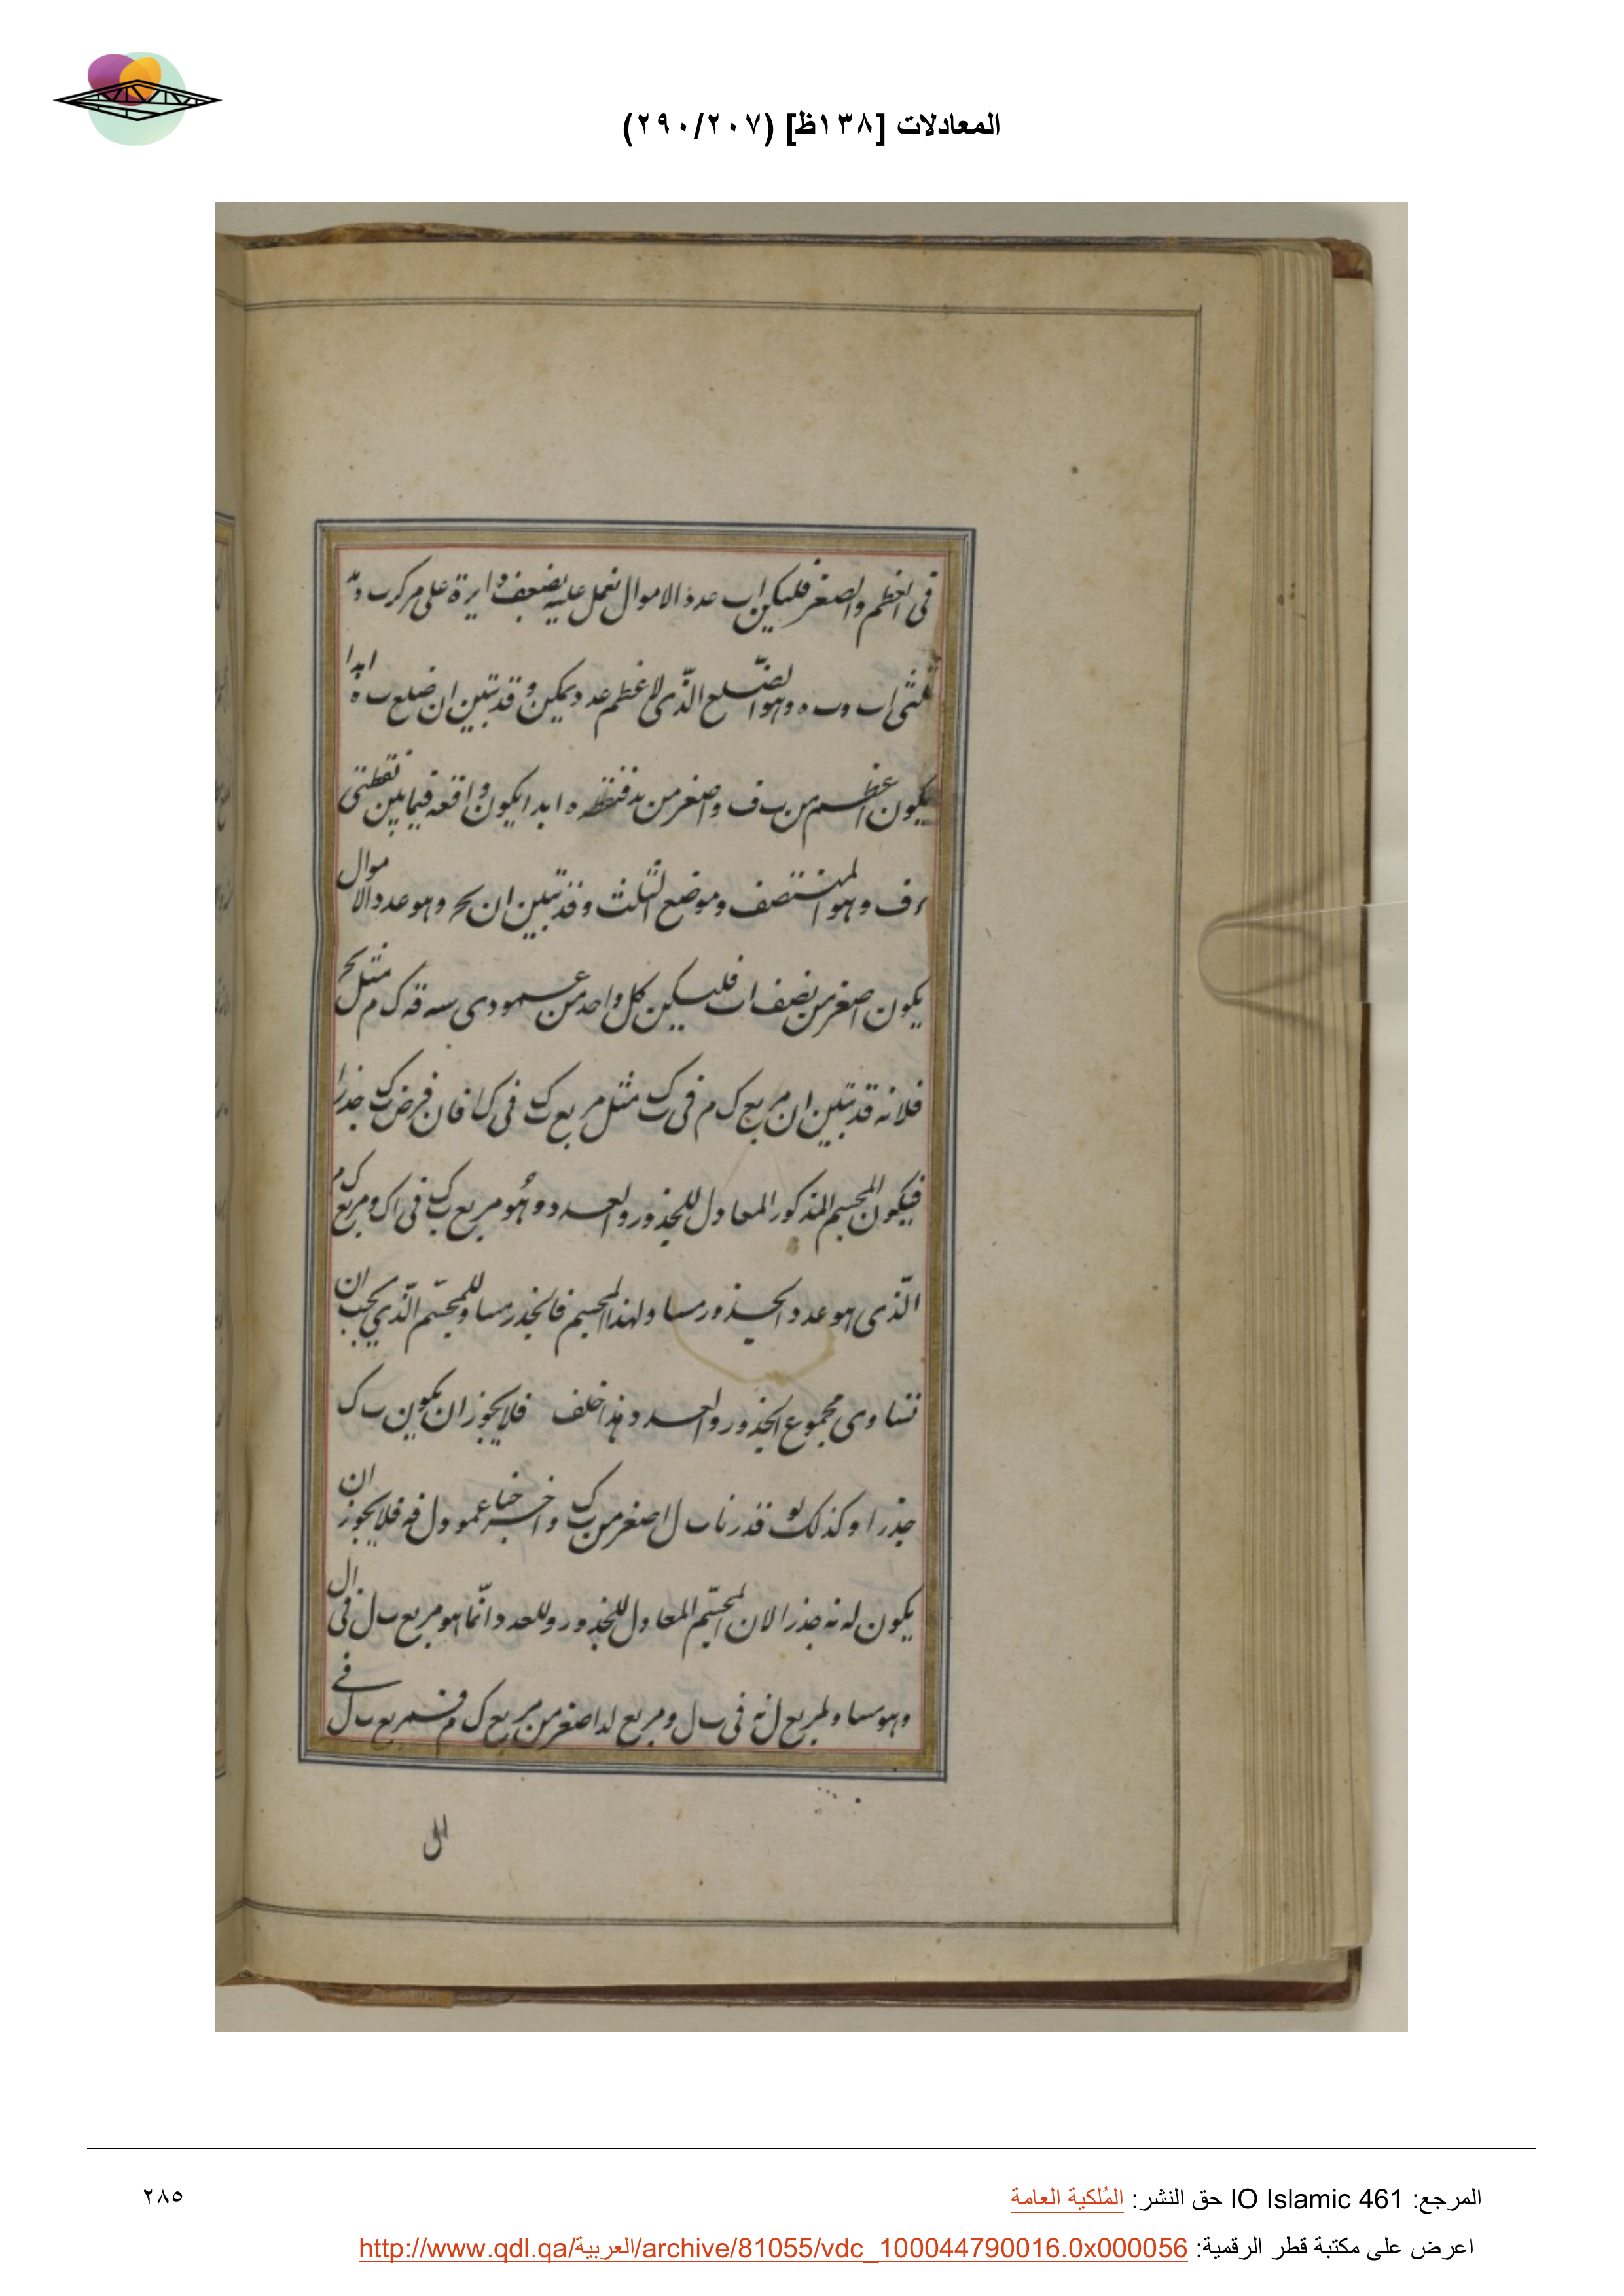 المعادلات [١٣٨ظ] (٢٩٠/٢٠٧)
فى العظم والصغر فليكن اب عدد الاموال نعمل عليه نصف دايرة على مركز ب
ثلثى اب وب ه وهو الضلع الذى لاعظم عدد يمكن وقد تبين ان ضلع ب ه ابدا
يكون اعظم من ب ف واصغر من فنقطة ه ابدا يكون واقعه فيما بين نقطتى
ف وهو المنتصف وموضع الثلث وقد تبين ان وهو عدد الاموال
يكون اصغر من نصف اب فليكن كل واحد من عمودى ك م مثل
فلانه قد تبين ان مربع ك م فى ب ك مثل مربع ب ك فى ك ا فان فرض ب ك جذرا
فيكون المجسم المذكور المعادل للجذور والعدد وهو مربع ب ك فى اك ومربع ك م
الذى هو عدد الجذور مساو لهذا المجسم فالجذر مساو للمجسم الذى يجب ان
تساوى مجموع الجذور والعدد وهذا خلف فلا يجوز ان يكون ب ك
جذرا وكذلك لو قدرنا ب ل اصغر من ب ك واخرجنا عمود ل فلا يجوز ان
يكون جذرا لان المجسم المعادل للجذور وللعدد انما هو مربع ب ل فى ال
وهو مساو لمربع ل فى ب ل ومربع اصغر من مربع ك م فمربع ب ل فى
ال
المرجع: IO Islamic 461 حق النشر: المُلكية العامة
٢٨٥
اعرض على مكتبة قطر الرقمية: http://www.qdl.qa/العربية/archive/81055/vdc_100044790016.0x000056